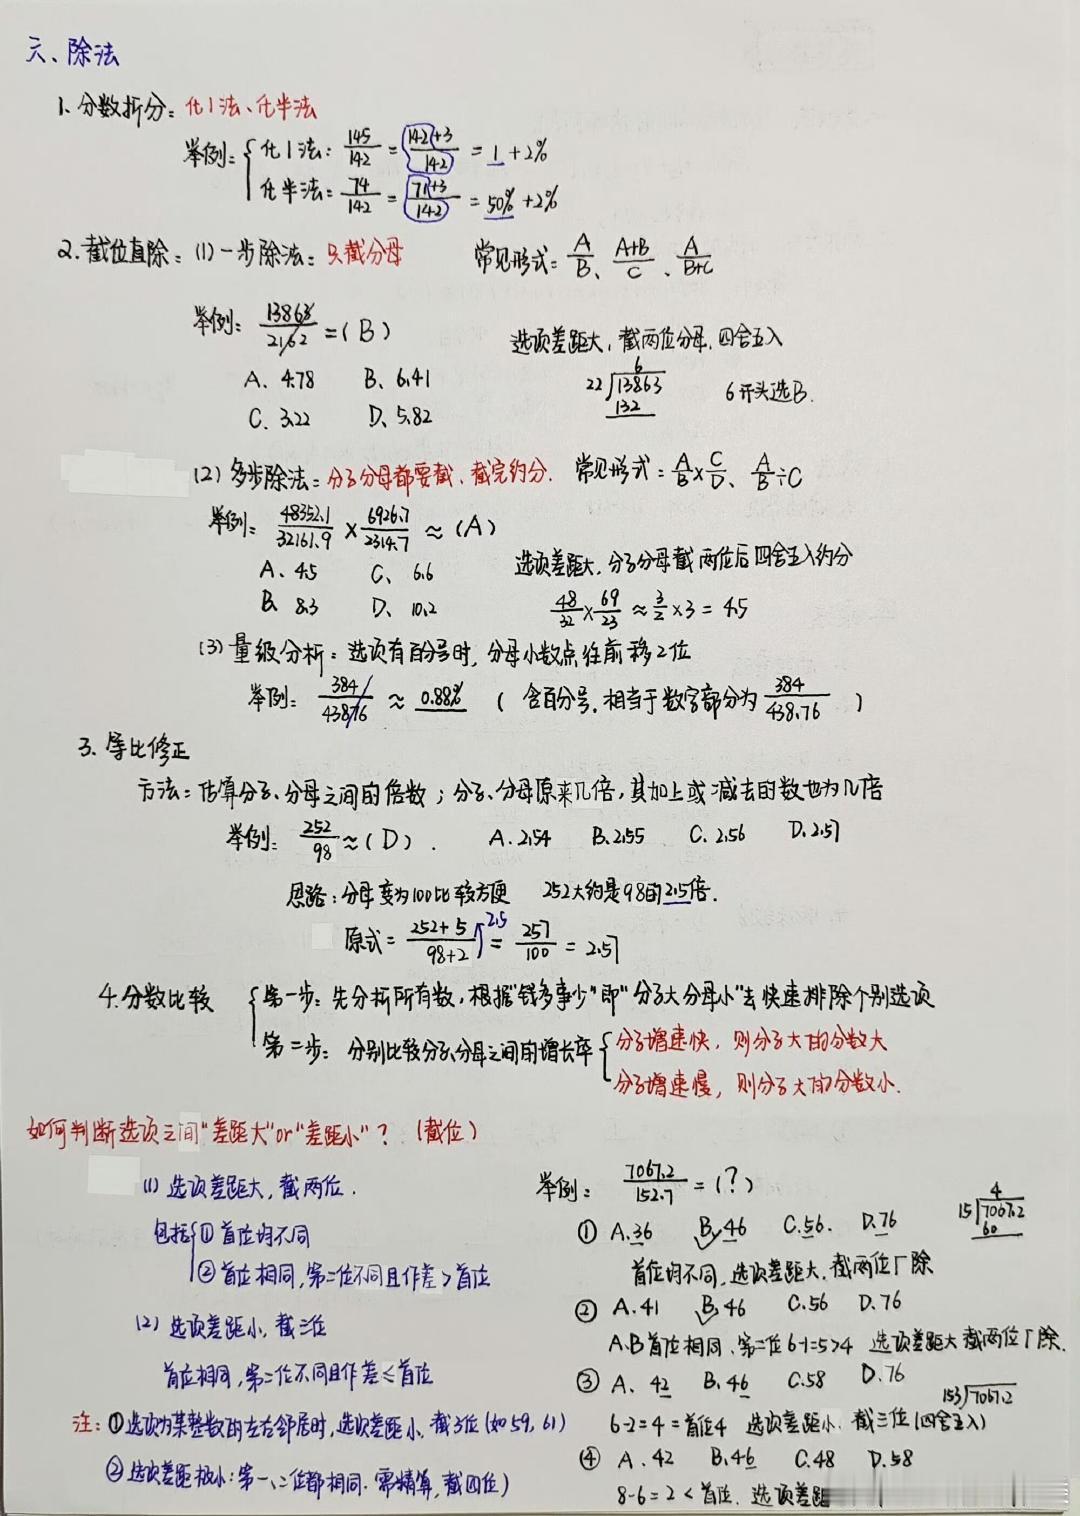 六、除法
1、分数拆分：化1法、化半法
举例：{ 化1法：145/142 = (142+3)/142 = 1+2%
化半法：74/142 = (71+3)/142 = 50%+2%
2、截位直除：(1)一步除法：只截分母 常见形式：A/B、(A+B)/C、A/(B+C)
举例：13863/2162 =（B）
选项差距大，截两位分母，四舍五入
A、4.78 B、6.41
6
22√13863 6开头选B.
132
C、3.22 D、5.82
(2)多步除法：分子分母都要截、截完约分. 常见形式：A/B×C/D、A/B÷C
举例：48352.1/32161.9 × 6926.7/2314.7 ≈（A）
选项差距大，分子分母截两位后四舍五入约分
A、4.5 C、6.6
B、8.3 D、10.2
48/32×69/23≈3/2×3=4.5
(3)量级分析：选项有百分号时，分母小数点往前移2位
举例：384/43876 ≈ 0.88% （含百分号，相当于数字部分为384/438.76）
3、等比修正
方法：估算分子、分母之间的倍数；分子、分母原来几倍，其加上或减去的数也为几倍
举例：252/98≈（D）. A.2.54 B.2.55 C.2.56 D.2.57
思路：分母变为100比较方便 252大约是98的2.5倍.
原式=(252+5)/(98+2) 2.5 = 257/100 = 2.57
4.分数比较 { 第一步：先分析所有数，根据“钱多事少”即“分子大分母小”去快速排除个别选项
第二步：分别比较分子、分母之间的增长率 { 分子增速快，则分子大的分数大
分子增速慢，则分子大的分数小.
如何判断选项之间“差距大”or“差距小”？（截位）
(1)选项差距大，截两位.
包括{①首位均不同
②首位相同，第二位不同且作差>首位
(2)选项差距小，截三位
首位相同，第二位不同且作差≤首位
注：①选项为某整数的左右邻居时，选项差距小，截3位(如59，61)
②选项差距极小：第一、二位都相同.需精算，截四位)
举例：7067.2/152.7 =(?)
4
15√7067.2
60
①A.36 B.46 C.56. D.76
首位均不同，选项差距大，截两位厂除
②A.41 B.46 C.56 D.76
A、B首位相同、第二位6-1=5>4 选项差距大截两位厂除.
③A、42 B、46 C.58 D.76
153√7067.2
6-2=4=首位4 选项差距小，截三位(四舍五入)
④A.42 B.46 C.48 D.58
8-6=2<首位. 选项差距